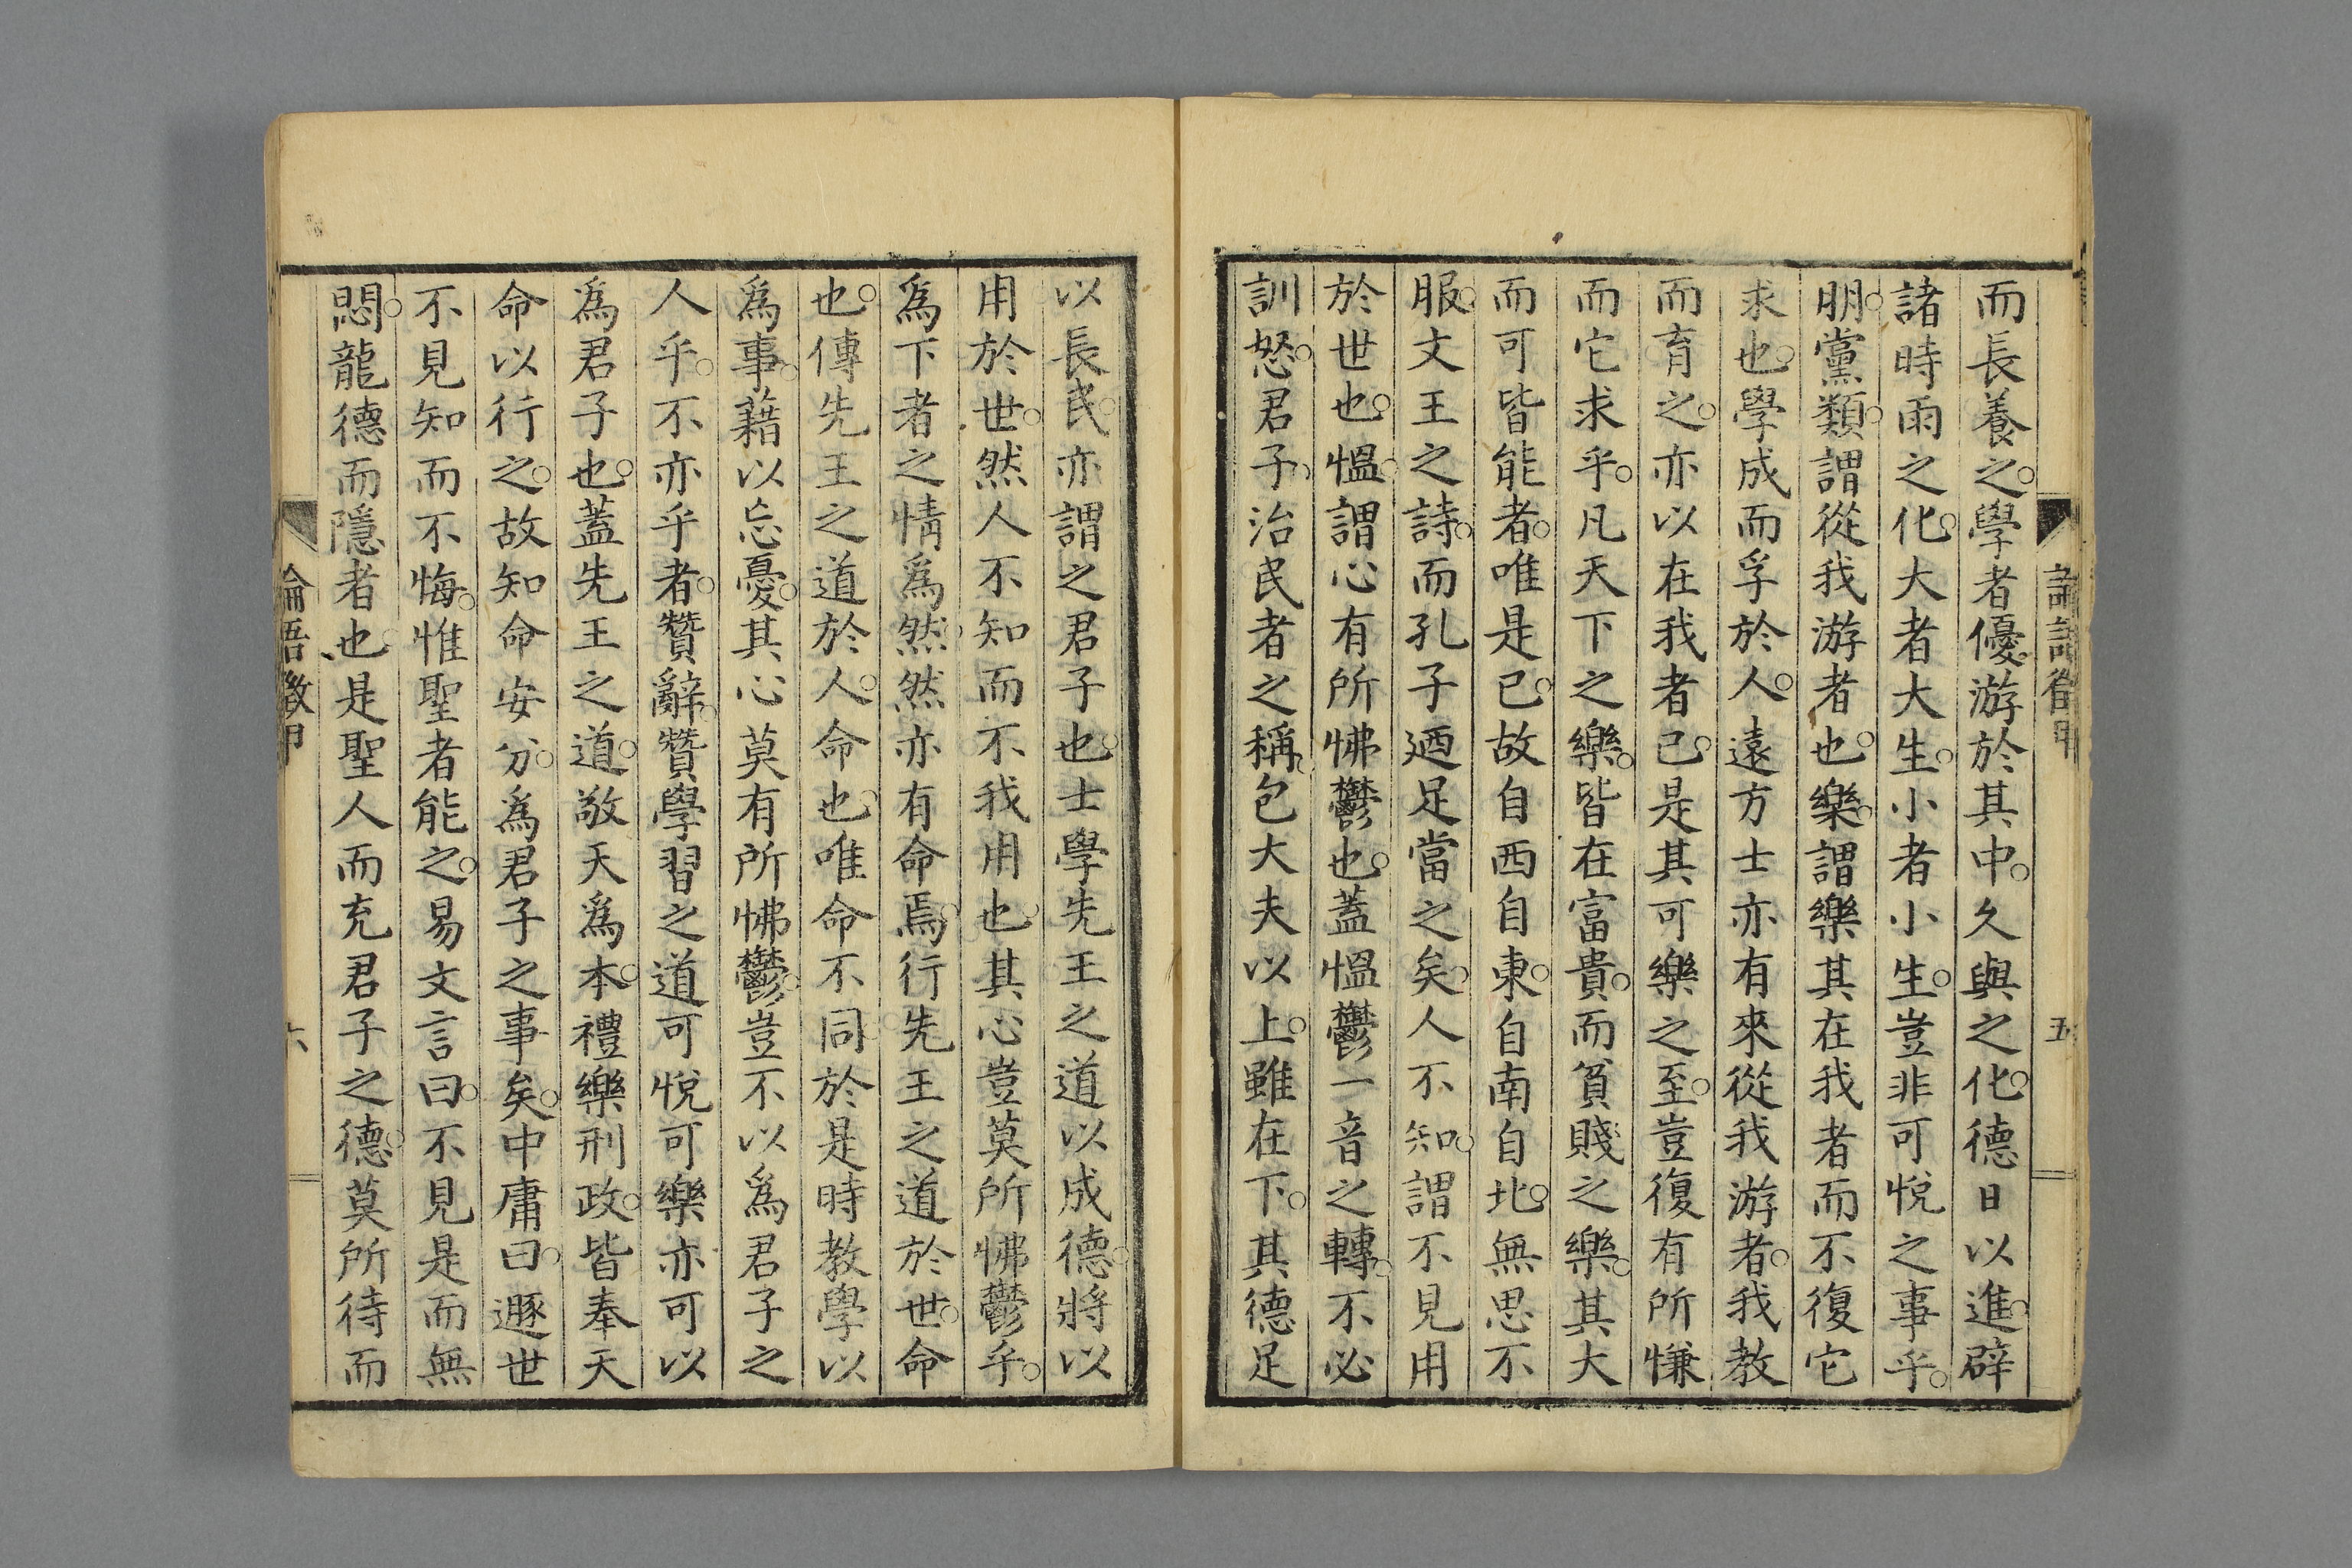 而長養之。學者優游於其中。久與之化。德日以進。辟
諸時雨之化。大者大生。小者小生。豈非可悅之事乎。
朋。黨類。謂從我游者也。樂。謂樂其在我者而不復它
求也。學成而孚於人。遠方士亦有來從我游者。我教
而育之。亦以在我者已。是其可樂之至。豈復有所慊
而它求乎。凡天下之樂。皆在富貴。而貧賤之樂。其大
而可皆能者。唯是已。故自西自東。自南自北。無思不
服。文王之詩。而孔子迺足當之矣。人不知。謂不見用
於世也。慍。謂心有所怫鬱也。蓋慍鬱一音之轉。不必
訓怒。君子。治民者之稱。包大夫以上。雖在下。其德足
五
以長民。亦謂之君子也。士學先王之道以成德。將以
用於世。然人不知而不我用也。其心豈莫所怫鬱乎。
為下者之情為然。然亦有命焉。行先王之道於世。命
也。傳先王之道於人。命也。唯命不同。於是時教學以
為事。藉以忘憂。其心莫有所怫鬱。豈不以為君子之
人乎。不亦乎者。贊辭。贊學習之道可悅可樂亦可以
為君子也。蓋先王之道。敬天為本。禮樂刑政。皆奉天
命以行之。故知命安分。為君子之事矣。中庸曰。遯世
不見知而不悔。惟聖者能之。易文言曰。不見是而無
悶。龍德而隱者也。是聖人而充君子之德。莫所待而
論語徵甲
六